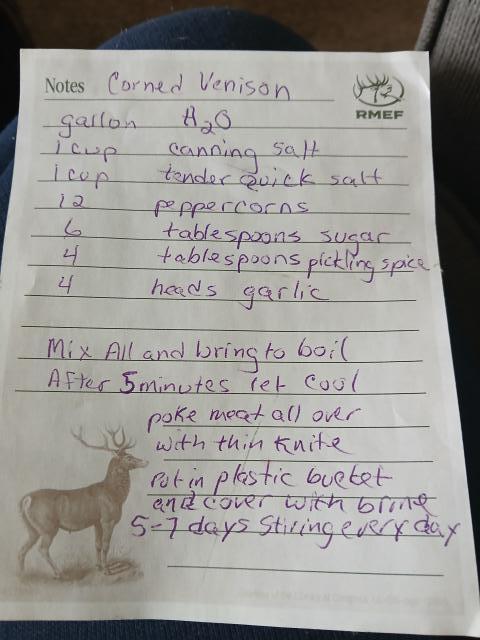 Notes Corned Venison
RMEF
gallon H2O
1 cup canning salt
1 cup tender quick salt
12 peppercorns
6 tablespoons sugar
4 tablespoons pickling spice
4 heads garlic
Mix All and bring to boil
After 5 minutes let cool
poke meat all over
with thin knife
Put in plastic bucket
and cover with brine
5-7 days Stiring every day